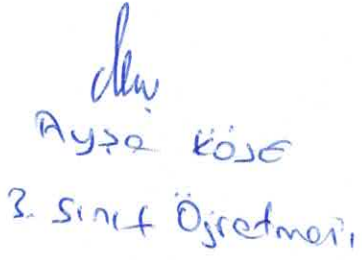 Ayşe KÖSE
3. Sınıf Öğretmeni